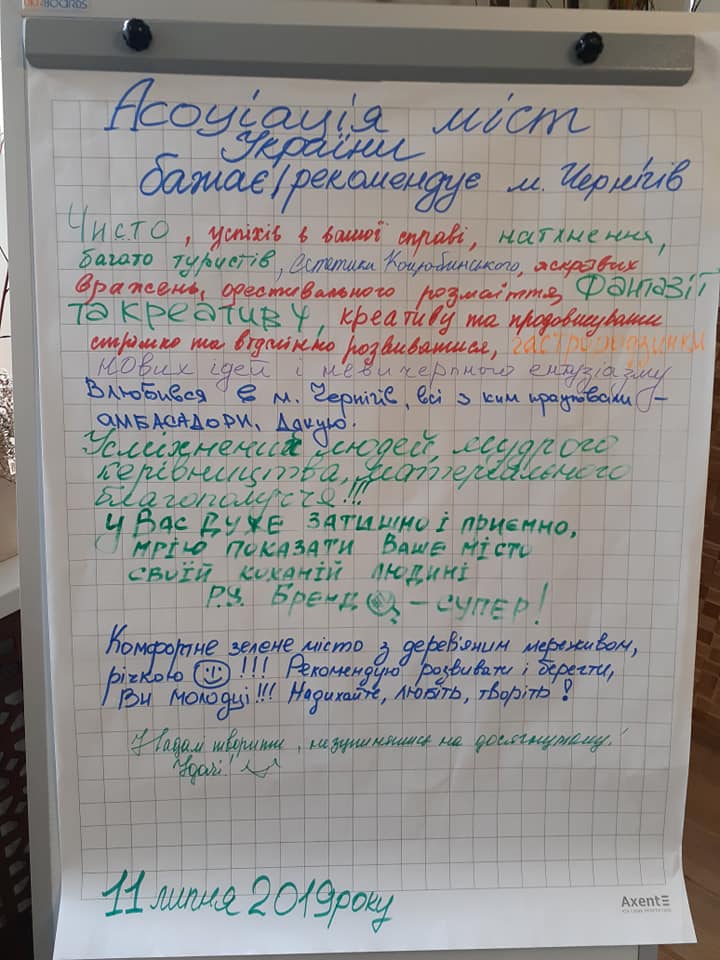 BOARDS
Асоціація міст
України
бажає/рекомендує м. Чернігів
Чисто, успіхів в вашої справі, натхнення,
багато туристів, естетики Коцюбинського, яскравих
вражень, фестивального розмаїття, Фантазії
та креативу, креативу та продовжувати
стрімко та відмінно розвиватися, гастро
нових ідей і невичерпного ентузіазму
Влюбився в м. Чернігів, всі з ким працювали –
АМБАСАДОРИ, Дякую.
Усміхнених людей, мудрого
керівництва, матеріального
благополуччя!!!
У Вас дуже затишно і приємно,
мрію показати Ваше місто
своїй коханій людині
P.S. Бренд – супер!
Комфортне зелене місто з дерев'яним мереживом,
річкою !!! Рекомендую розвивати і берегти,
Ви молодці!!! Надихайте, любіть, творіть!
Надалі творити, не зупинятись на досягнутому!
Удачі!
11 липня 2019 року
Axent